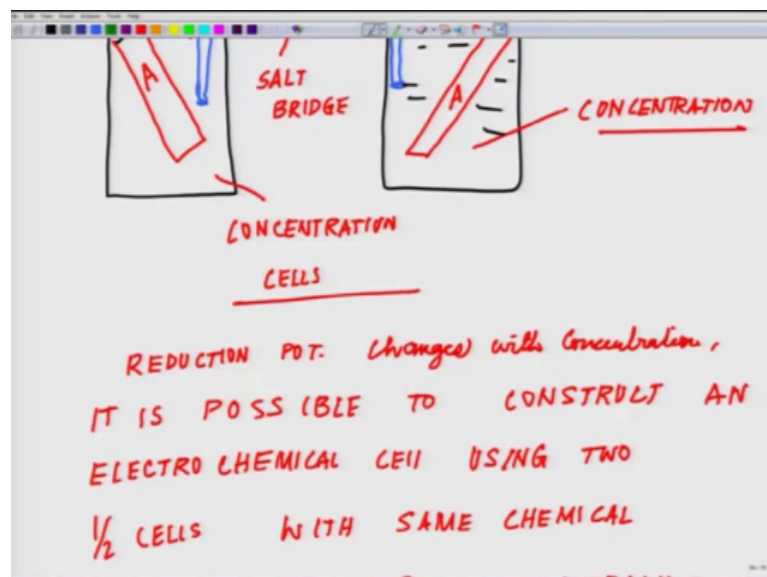 A
SALT
BRIDGE
A
CONCENTRATION
CONCENTRATION
CELLS
REDUCTION POT. Changes with Concentration,
IT IS POSSIBLE TO CONSTRUCT AN
ELECTRO CHEMICAL CELL USING TWO
1/2 CELLS WITH SAME CHEMICAL